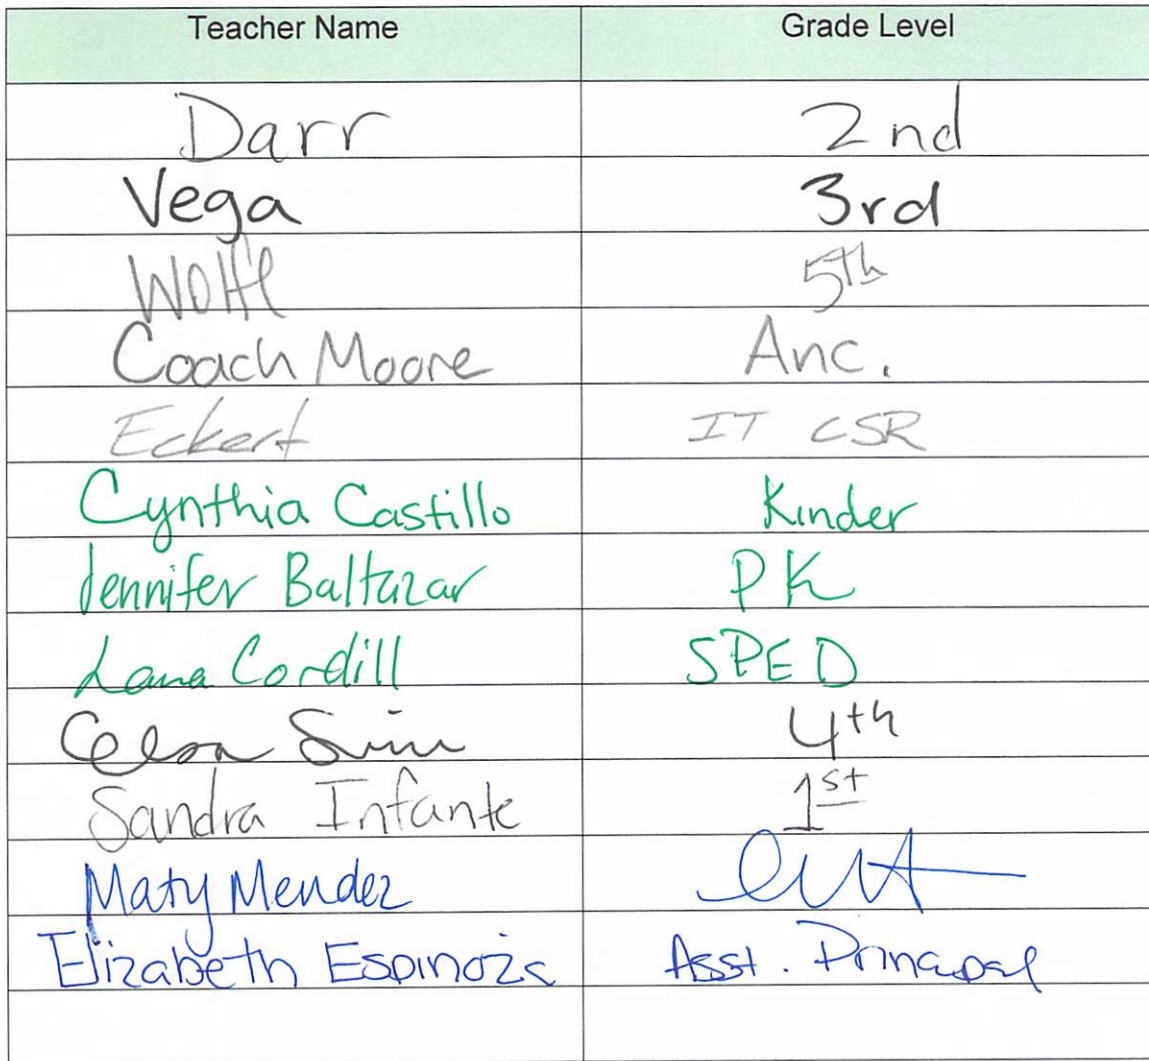 Teacher Name Grade Level
Darr 2nd
Vega 3rd
Wolfe 5th
Coach Moore Anc.
Eckert IT CSR
Cynthia Castillo Kinder
Jennifer Baltazar PK
Lana Cordill SPED
4th
Sandra Infante 1st
Maty Mendez
Elizabeth Espinoza Asst. Principal